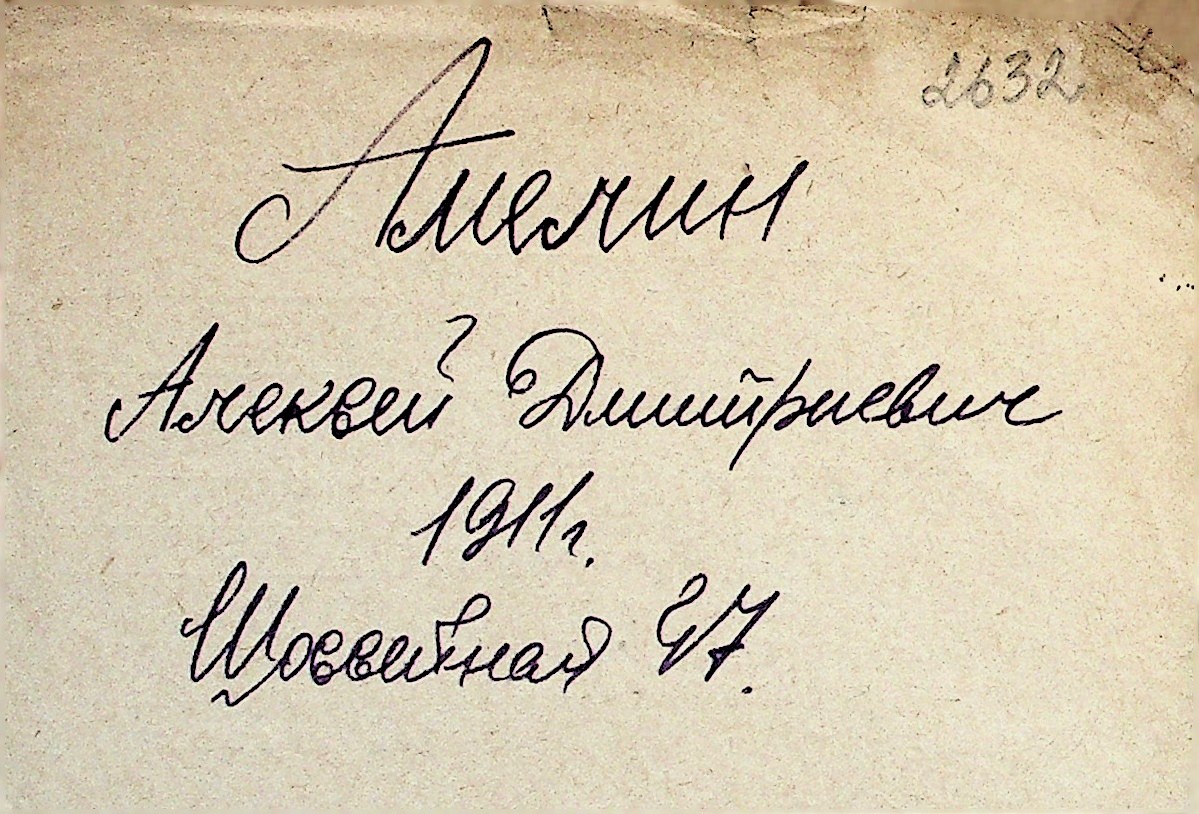 2632
Амелин
Алексей Дмитриевич
1911г.
Шоссейная 47.